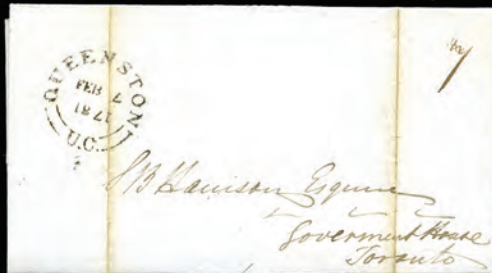 QUEENSTON
FEB 4
1841
U.C.
7
S B Harrison Esquire
Goverment House
Toronto